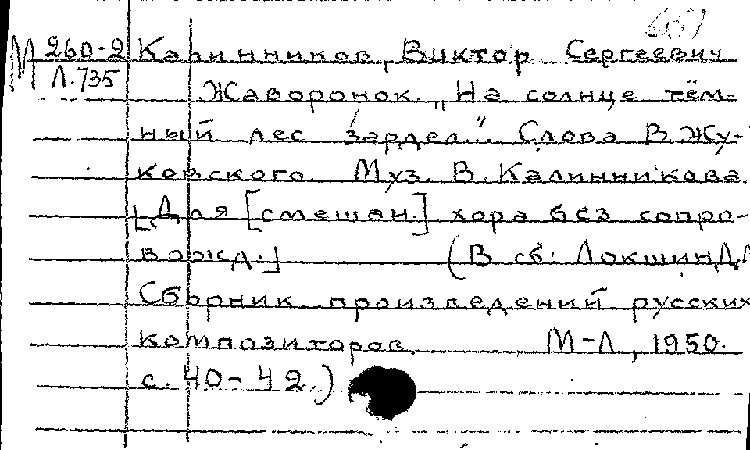 М 260-2 Калинников, Виктор Сергеевич
Л.735 Жаворонок. „На солнце тём-
ный лес зардел". Слова В. Жу-
ковского. Муз. В. Калинникова.
[Для [смешан.] хора без сопро-
вожд.] (В сб: Локшин Д.Л.
Сборник произведений русских
композиторов. М-Л, 1950.
с. 40-42.)